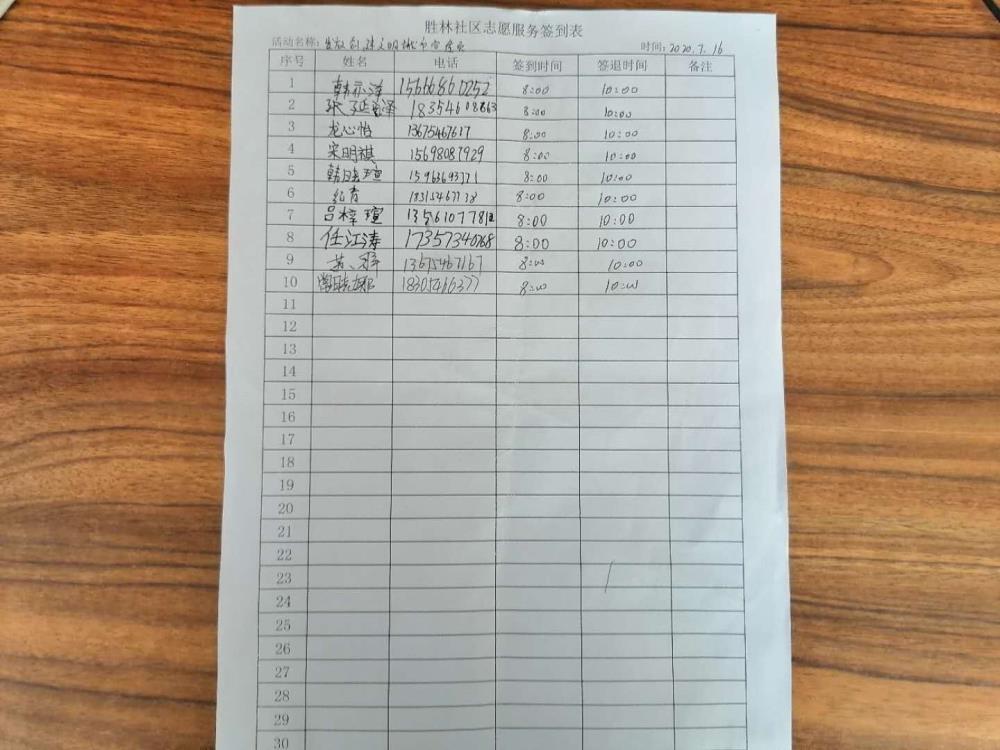 胜林社区志愿服务签到表
活动名称: 发放创建文明城市宣传页 时间: 2020.7.16
序号 姓名 电话 签到时间 签退时间 备注
1 韩示泽 15666860252 8:00 10:00
2 张延泽 18354608863 8:00 10:00
3 龙心怡 13675467617 8:00 10:00
4 宋明祺 15698087929 8:00 10:00
5 韩瑄 15963693771 8:00 10:00
6 纪青 8:00 10:00
7 吕梓瑄 8:00 10:00
8 任江涛 17357340768 8:00 10:00
9 13675467167 8:00 10:00
10 18305466377 8:00 10:00
11
12
13
14
15
16
17
18
19
20
21
22
23
24
25
26
27
28
29
30